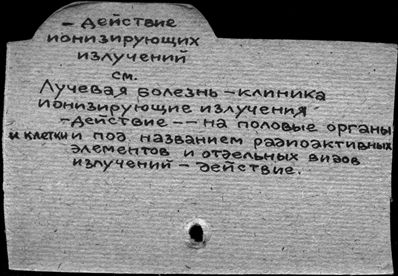 - Действие
ионизирующих
излучений
см.
Лучевая болезнь - клиника
ионизирующие излучения -
- действие -- на половые органы
и клетки и под названием радиоактивных
элементов и отдельных видов
излучений - действие.